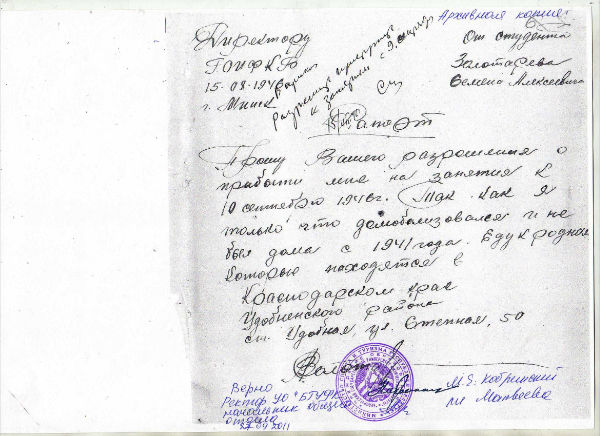 Архивная копия
Директору
ГОИФКБ
15-08-1946
г. Минск
От студента
Золотарева
Семена Алексеевича
Разрешить
к занятиям с
Рапорт
Прошу Вашего разрешения о
прибытии мне на занятия к
10 сентября 1946г. Так как я
только что домобилизовался и не
был дома с 1941 года. Еду к родным
которые находятся в
Краснодарском крае
Удобненского района
ст. Удобная, ул. Степная, 50
Золот
Верно
Ректор УО "БГУФК"
начальник общего
отдела
27.04.2011
М.Е. Кобринский
Матвеева